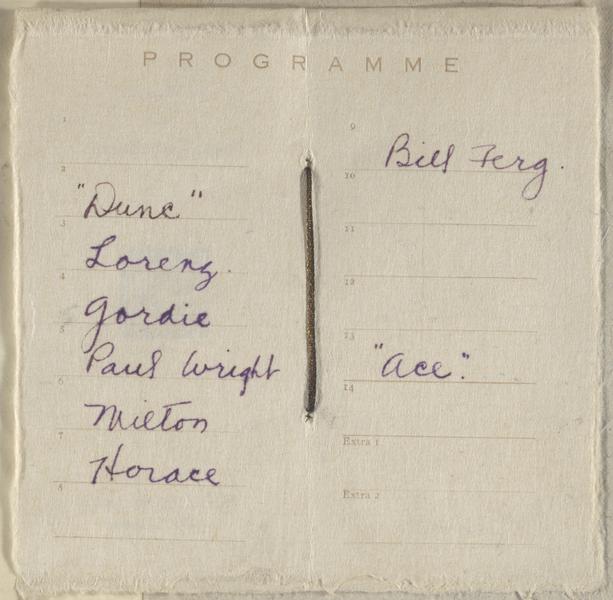 PROGRAMME
1
2
"Dunc"
3
Lorenz.
4
Gordie
5
Paul Wright
6
Milton
7
Horace
8
9
Bill Ferg.
10
11
12
13
"Ace".
14
Extra 1
Extra 2